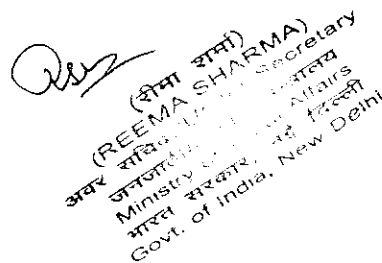 (रीमा शर्मा)
(REEMA SHARMA)
अवर सचिव Secretary
Ministry Affairs
भारत सरकार, नई दिल्ली
Govt. of India, New Delhi